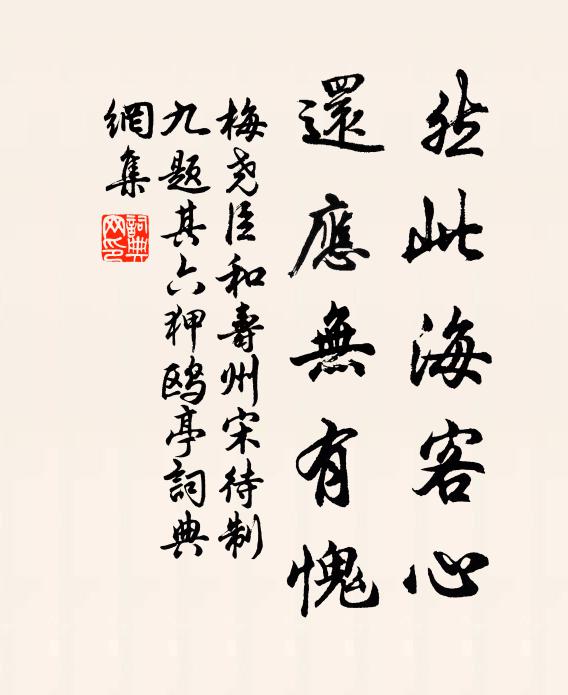 然此海客心
還應無有愧
梅尧臣和壽州宋待制
九题其六狎鸥亭詞典
網集
詞典网印